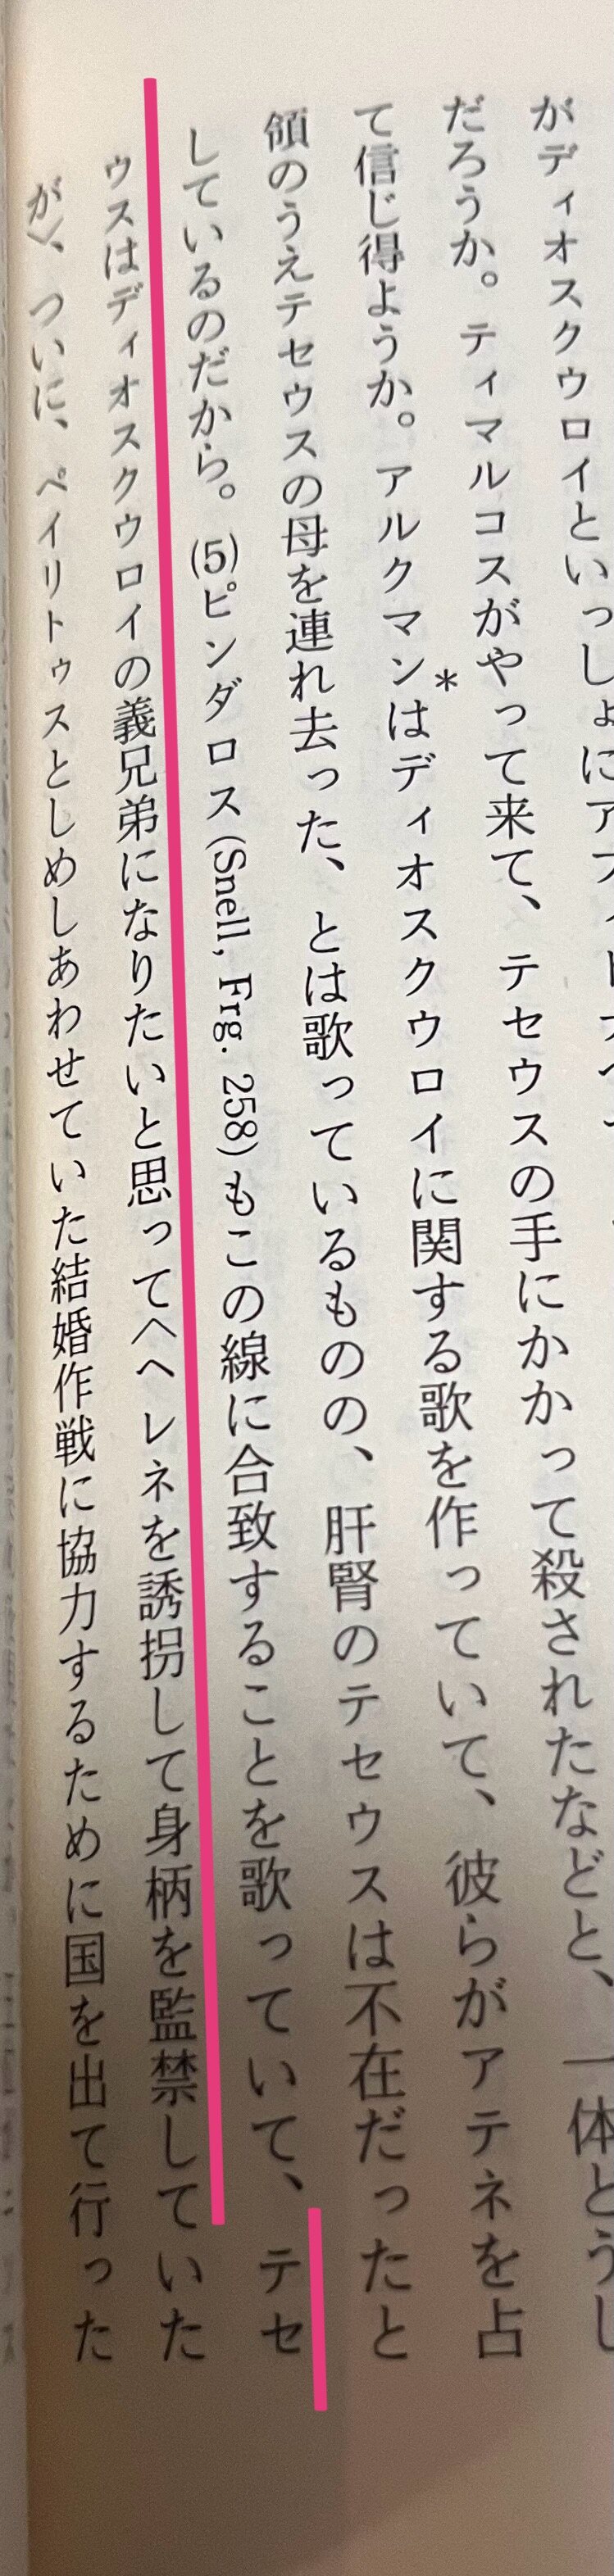 がディオスクウロイといっしょにア
だろうか。ティマルコスがやって来て、テセウスの手にかかって殺されたなどと、一体どうし
て信じ得ようか。アルクマン*はディオスクウロイに関する歌を作っていて、彼らがアテネを占
領のうえテセウスの母を連れ去った、とは歌っているものの、肝腎のテセウスは不在だったと
しているのだから。(5)ピンダロス(Snell, Frg. 258)もこの線に合致することを歌っていて、テセ
ウスはディオスクウロイの義兄弟になりたいと思ってヘヘレネを誘拐して身柄を監禁していた
が〉、ついに、ペイリトゥスとしめしあわせていた結婚作戦に協力するために国を出て行った